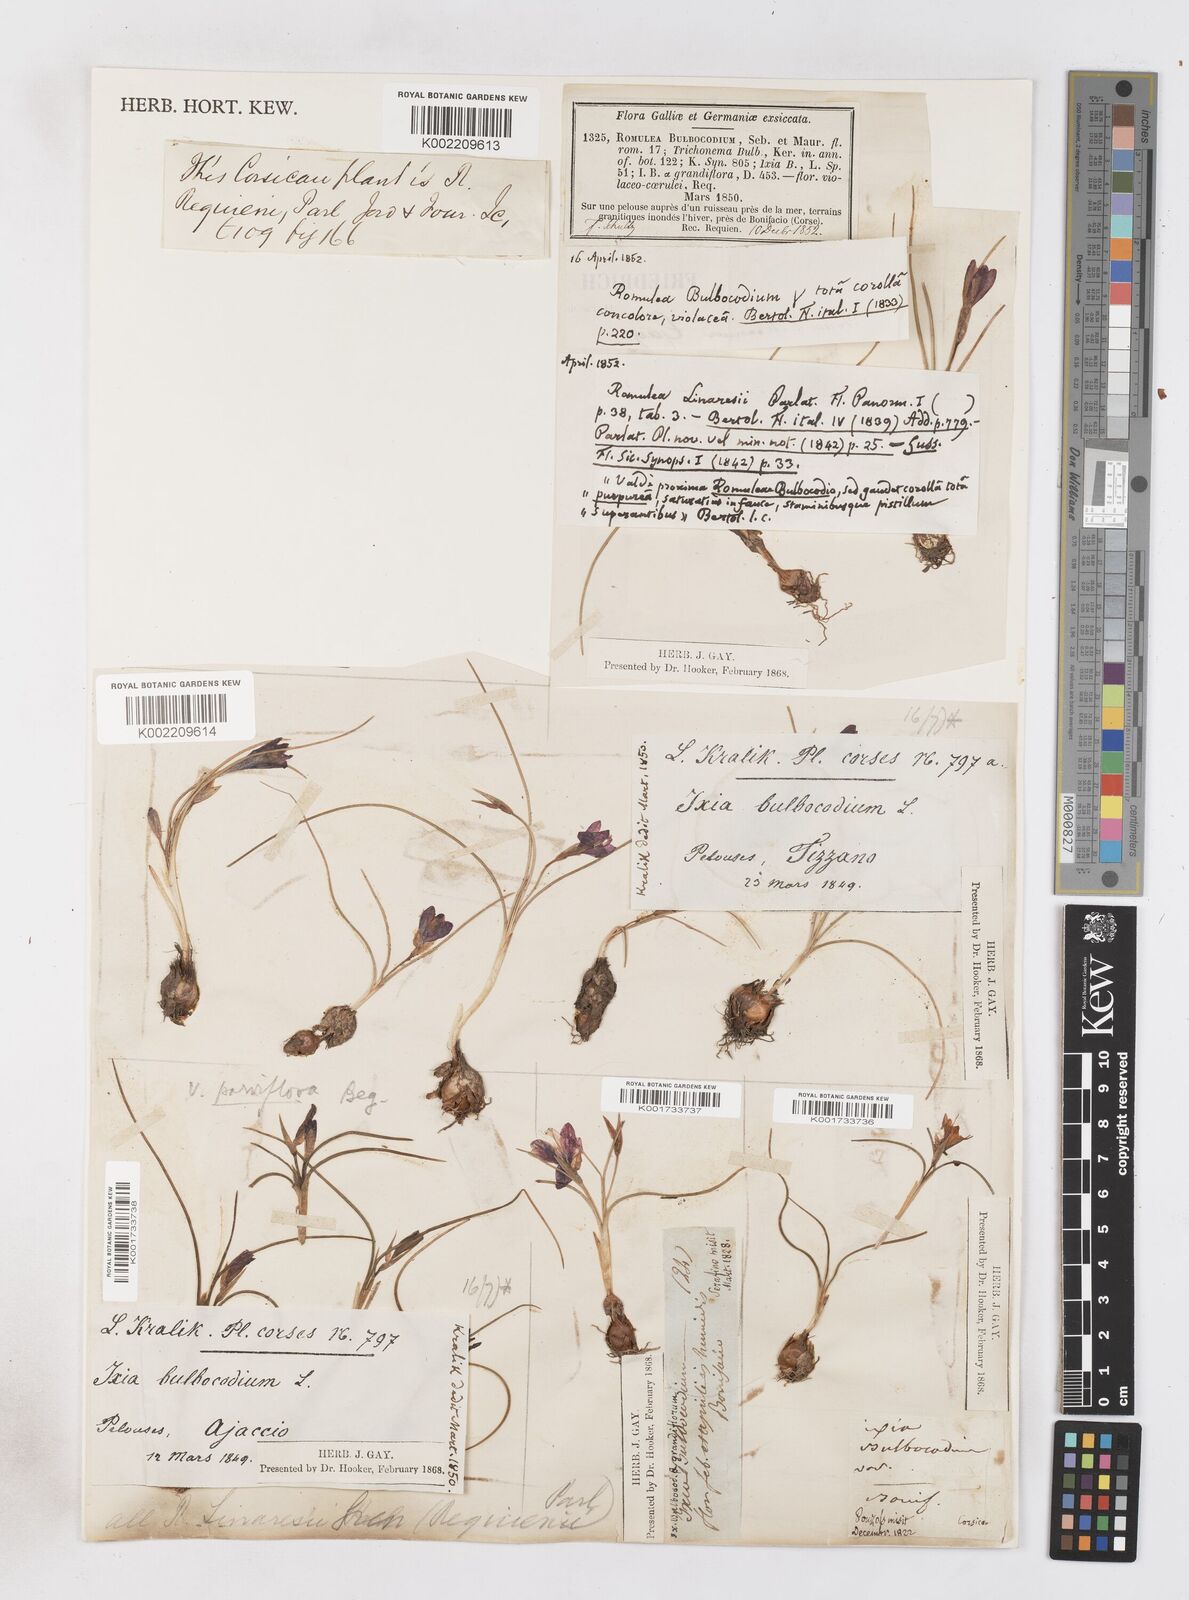 HERB. HORT. KEW.
ROYAL BOTANIC GARDENS KEW
K002209613
This Corsican plant is R.
Requieni, Parl, Jord & Four. Ic,
t109 fig 166
Flora Galliæ et Germaniæ exsiccata.
1325, ROMULEA BULBOCODIUM, Seb. et Maur. fl.
rom. 17; Trichonema Bulb., Ker. in. ann.
of. bot. 122; K. Syn. 805; Ixia B., L. Sp.
51; I. B. α grandiflora, D. 453.—flor. vio-
laceo-cœrulei. Req.
Mars 1850.
Sur une pelouse auprès d'un ruisseau près de la mer, terrains
granitiques inondés l'hiver, près de Bonifacio (Corse).
Rec. Requien. 10 Decbr 1852.
16 April. 1852.
Romulea Bulbocodium γ totâ corollâ
concolore, violaceâ. Bertol. Fl. ital. I (1833)
p. 220.
April. 1852.
Romulea Linaresii Parlat. Fl. Panorm. I ( )
p. 38, tab. 3. — Bertol. Fl. ital. IV (1839) Add. p. 779. —
Parlat. Pl. nov. vel min. not. (1842) p. 25. — Guss.
Fl. Sic. Synops. I (1842) p. 33.
" Valdè proxima Romuleae Bulbocodio, sed gaudet corollâ totâ
" purpureâ, saturatius in fauce, staminibusque pistillum
" superantibus » Bertol. l. c.
HERB. J. GAY.
Presented by Dr. Hooker, February 1868.
ROYAL BOTANIC GARDENS KEW
K002209614
16/7)*
L. Kralik. Pl. corses No. 797 a.
Ixia bulbocodium L.
Pelouses, Tizzano
23 Mars 1849.
Kralik dedit Mart. 1850.
HERB. J. GAY.
Presented by Dr. Hooker, February 1868.
v. parviflora Beg.
ROYAL BOTANIC GARDENS KEW
K001733738
ROYAL BOTANIC GARDENS KEW
K001733737
ROYAL BOTANIC GARDENS KEW
K001733736
16/7)*
L. Kralik. Pl. corses No. 797
Ixia bulbocodium L.
Pelouses, Ajaccio
12 Mars 1849.
Kralik dedit Mart. 1850.
HERB. J. GAY.
Presented by Dr. Hooker, February 1868.
all R. Linaresii (Requienii Parl)
HERB. J. GAY.
Presented by Dr. Hooker, February 1868.
Bonifacio
Serafino misit
Mart. 1828.
HERB. J. GAY.
Presented by Dr. Hooker, February 1868.
ixia
Bulbocodium
var.
Bonif.
Pouzolz misit
Decembr. 1822
Corsica
Inches
centimetres
Don Williams
M000827
Royal Botanic Gardens
Kew
0 1 2 3 4 5 6 7 8 9 10
cm
copyright reserved